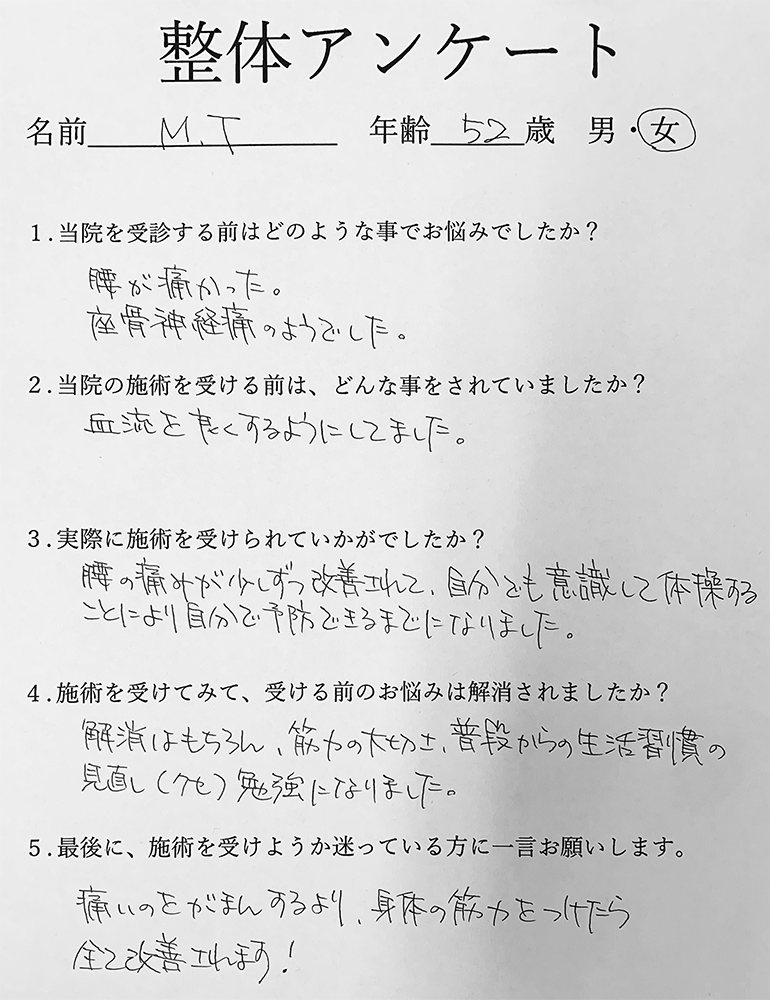 整体アンケート
名前 M.T 年齢 52 歳 男・女
1.当院を受診する前はどのような事でお悩みでしたか？
腰が痛かった。
座骨神経痛のようでした。
2.当院の施術を受ける前は、どんな事をされていましたか？
血流を良くするようにしてました。
3.実際に施術を受けられていかがでしたか？
腰の痛みが少しずつ改善されて、自分でも意識して体操する
ことにより自分で予防できるまでになりました。
4.施術を受けてみて、受ける前のお悩みは解消されましたか？
解消はもちろん、筋力の大切さ、普段からの生活習慣の
見直し（クセ）勉強になりました。
5.最後に、施術を受けようか迷っている方に一言お願いします。
痛いのをがまんするより、身体の筋力をつけたら
全て改善されます！